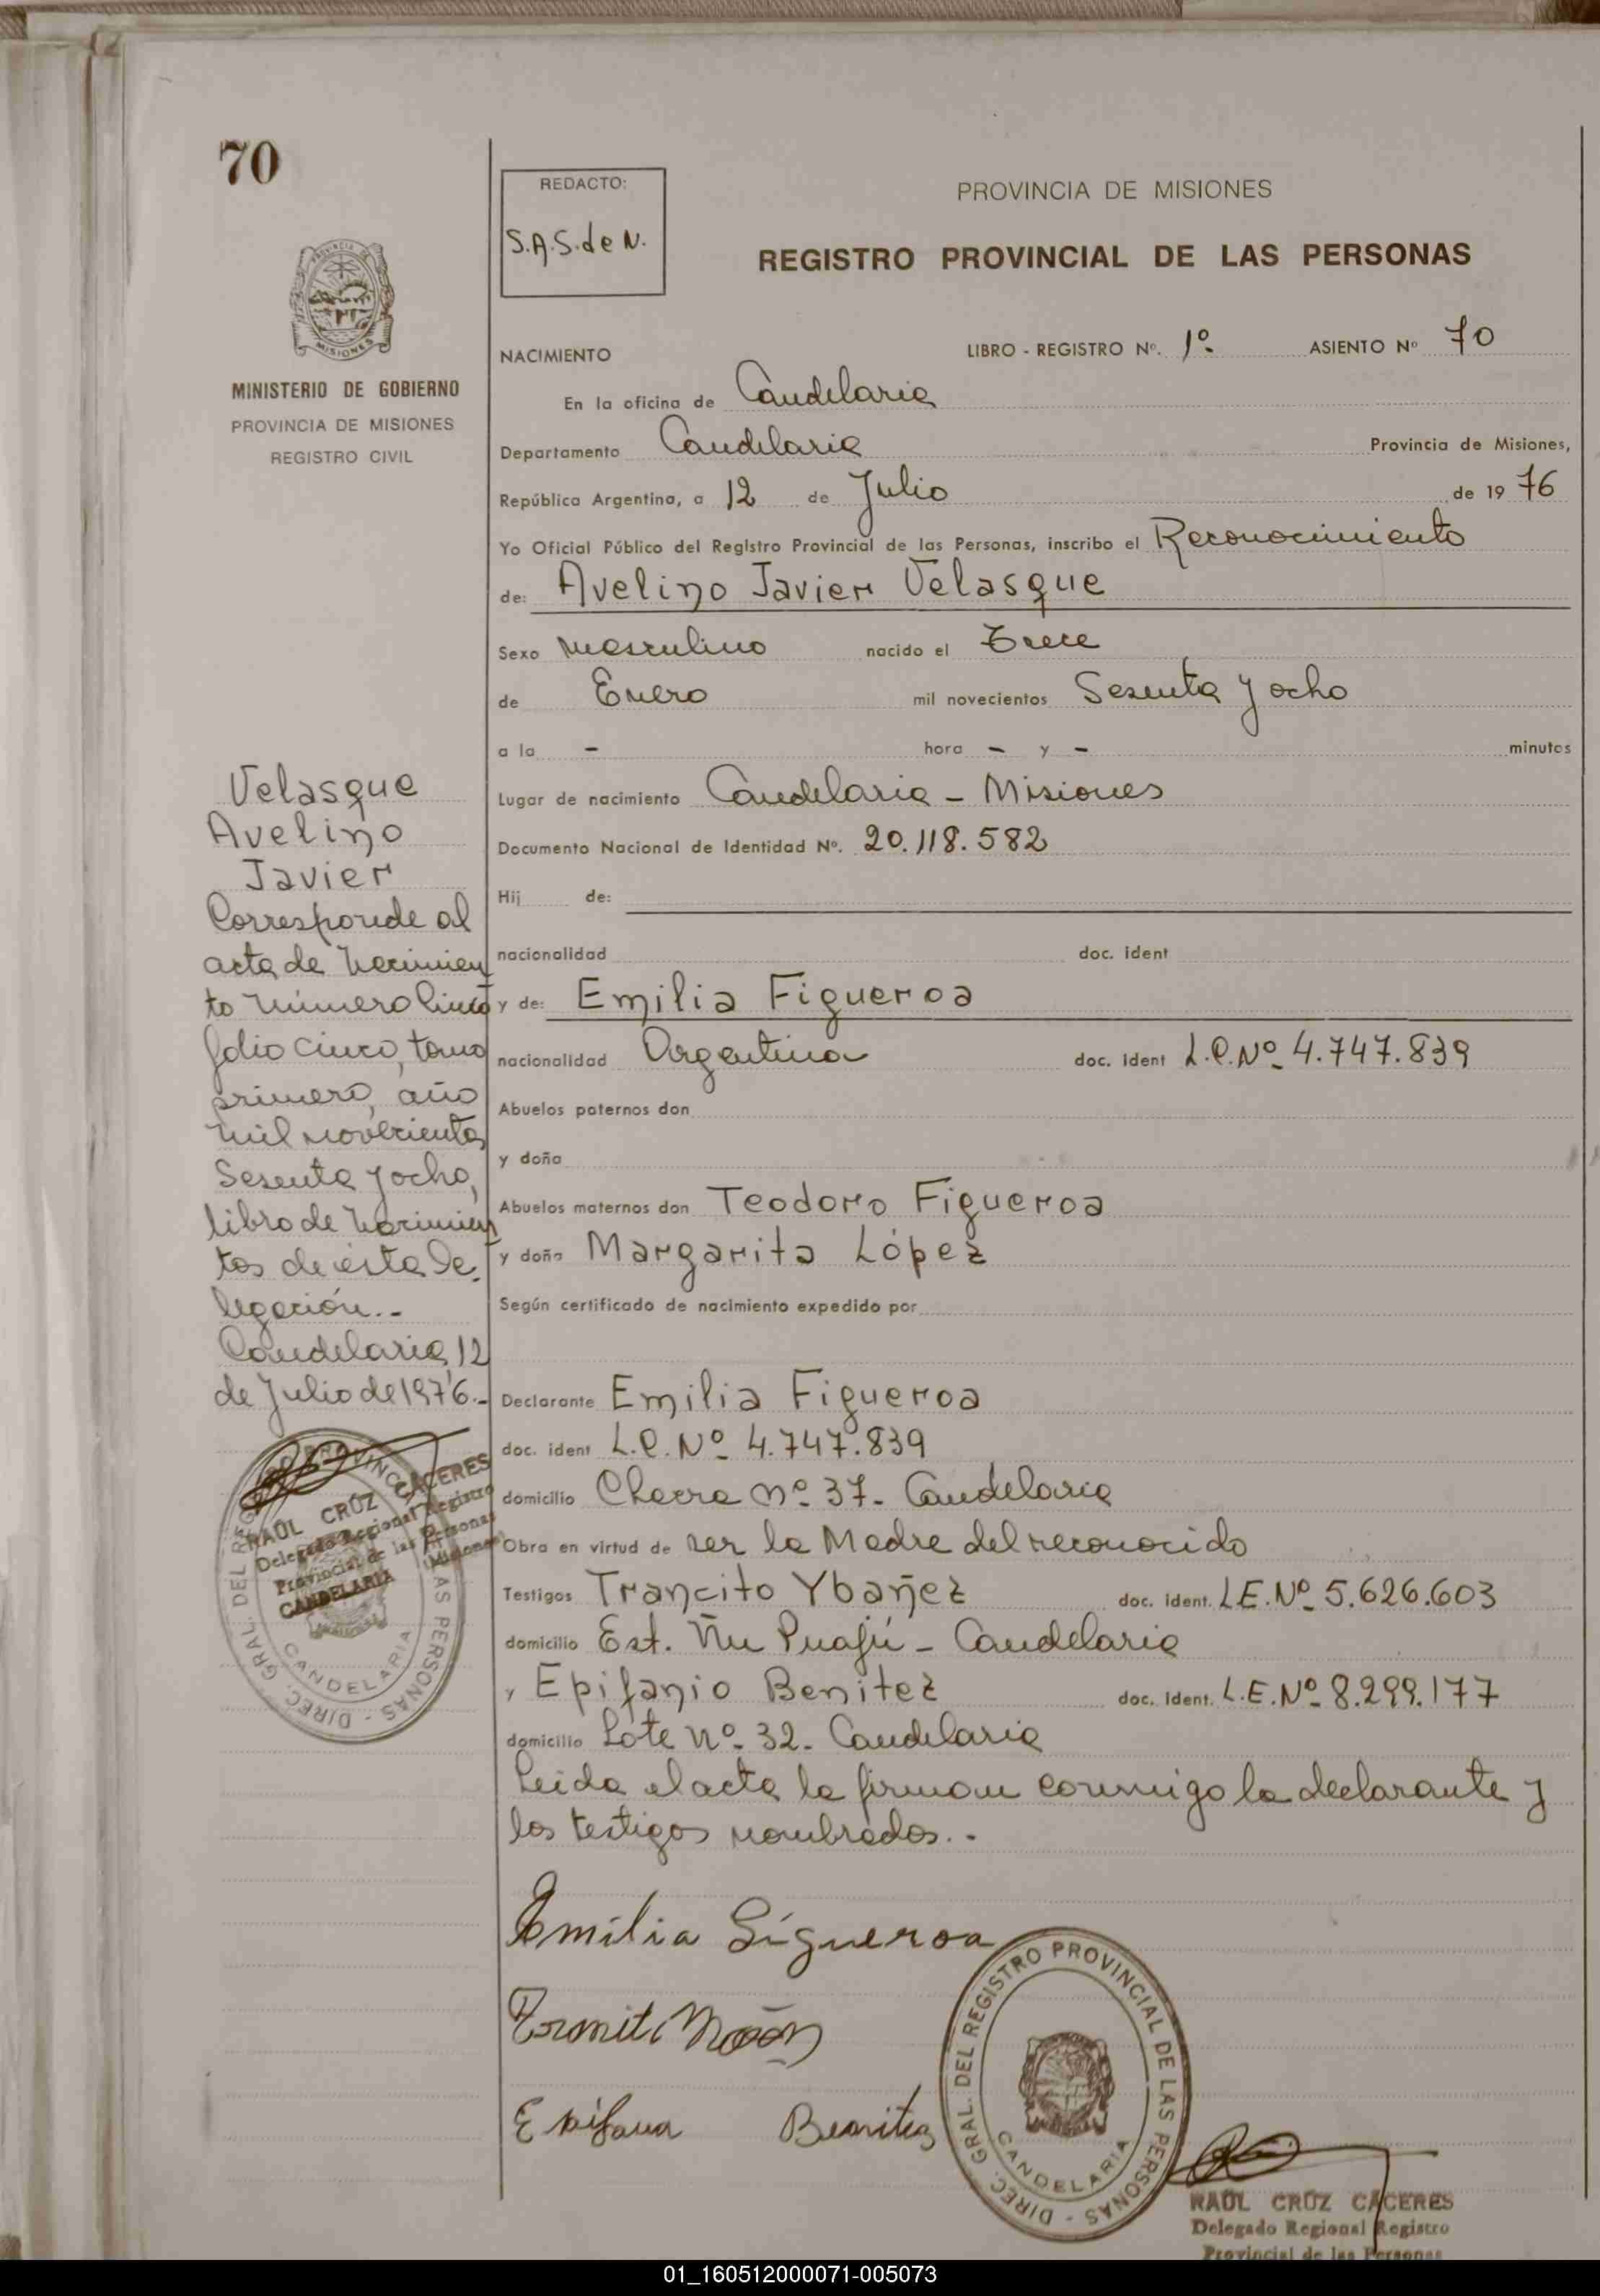 70
MINISTERIO DE GOBIERNO
PROVINCIA DE MISIONES
REGISTRO CIVIL
Velasque
Avelino
Javier
Corresponde al
acta de Nacimien
to Número Cinco
folio cinco, tomo
primero, año
mil novecientos
Sesenta y ocho,
libro de Nacimien
tos de ésta De-
legación.-
Candelaria, 12
de Julio de 1976.-
RAÚL CRUZ CACERES
Delegado Regional Registro
Provincial de las Personas
CANDELARIA (Misiones)
DIREC. GRAL. DEL REGISTRO PROVINCIAL DE LAS PERSONAS - CANDELARIA
REDACTO:
S.A.S. de N.
PROVINCIA DE MISIONES
REGISTRO PROVINCIAL DE LAS PERSONAS
NACIMIENTO LIBRO - REGISTRO Nº. 1º. ASIENTO Nº 70
En la oficina de Candelaria
Departamento Candelaria Provincia de Misiones,
República Argentina, a 12 de Julio de 1976
Yo Oficial Público del Registro Provincial de las Personas, inscribo el Reconocimiento
de: Avelino Javier Velasque
Sexo Masculino nacido el Trece
de Enero mil novecientos Sesenta y ocho
a la - hora - y - minutos
Lugar de nacimiento Candelaria - Misiones
Documento Nacional de Identidad Nº. 20.118.582
Hij de:
nacionalidad doc. ident
y de: Emilia Figueroa
nacionalidad Argentina doc. ident L.C. Nº 4.747.839
Abuelos paternos don
y doña
Abuelos maternos don Teodoro Figueroa
y doña Margarita López
Según certificado de nacimiento expedido por
Declarante Emilia Figueroa
doc. ident L.C. Nº 4.747.839
domicilio Chacra nº 37. Candelaria
Obra en virtud de ser la Madre del reconocido
Testigos Trancito Ybañez doc. ident. L.E. Nº 5.626.603
domicilio Est. Ñu Puajú - Candelaria
y Epifanio Benitez doc. ident. L.E. Nº 8.299.177
domicilio Lote nº 32. Candelaria
Leida el acta la firman conmigo la declarante y
los testigos nombrados.-
Emilia Figueroa
Benitez
DIREC. GRAL. DEL REGISTRO PROVINCIAL DE LAS PERSONAS - CANDELARIA
RAÚL CRUZ CACERES
Delegado Regional Registro
Provincial de las Personas
01_160512000071-005073